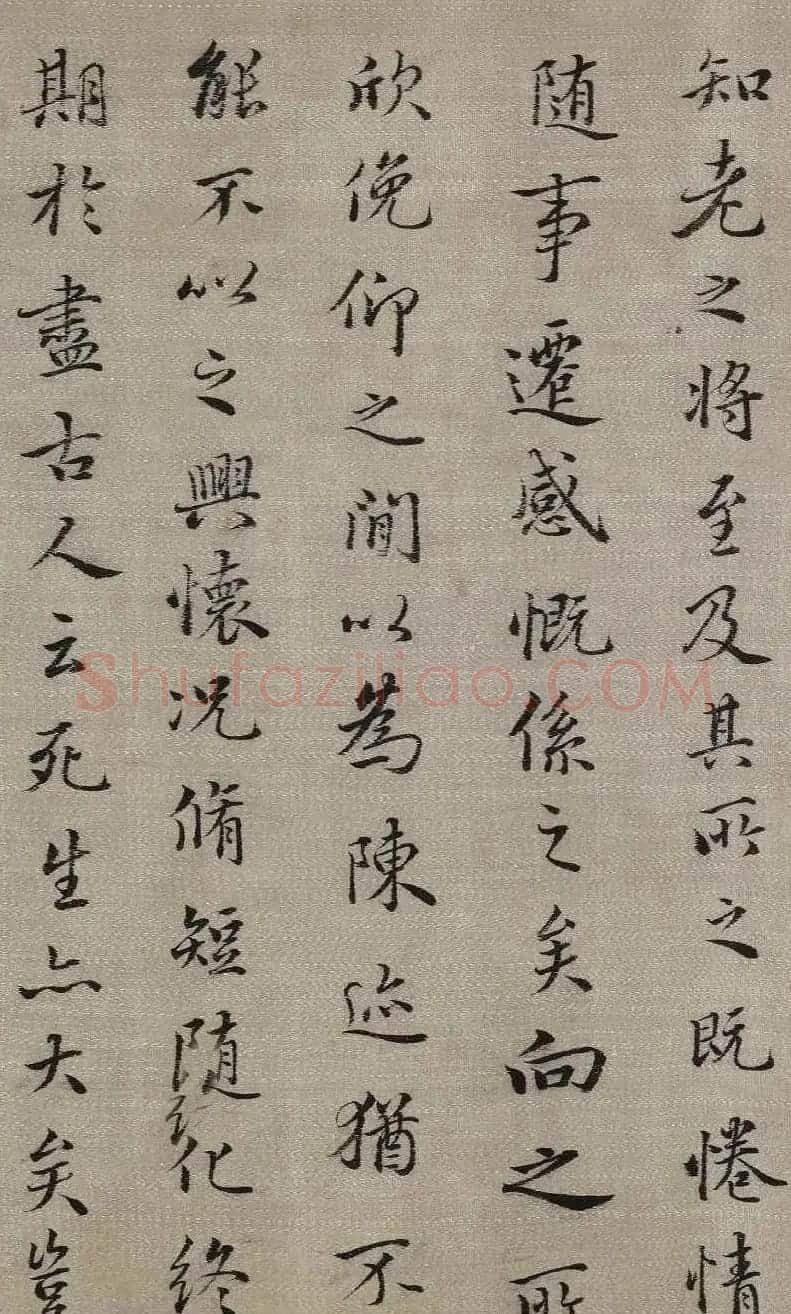 知老之将至及其所之既惓情
随事遷感慨係之矣向之所
欣俛仰之間以為陳迹猶不
能不以之興懷況脩短随化終
期於盡古人云死生亦大矣豈
Shufaziliao.COM